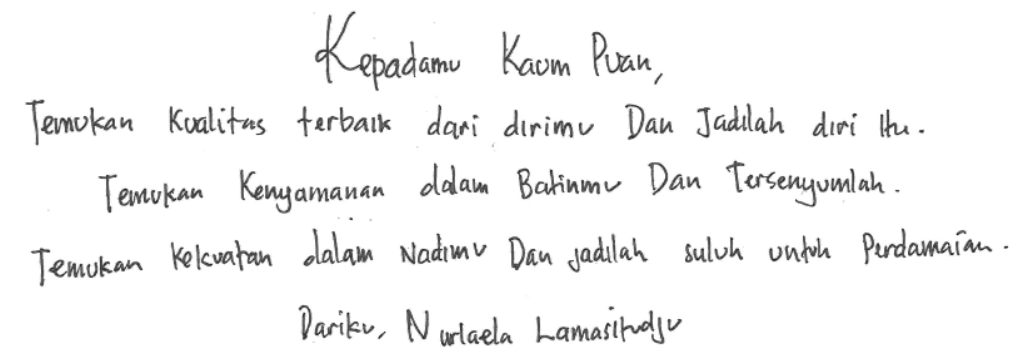 Kepadamu Kaum Puan,
Temukan Kualitas terbaik dari dirimu Dan Jadilah diri Itu.
Temukan Kenyamanan dalam Batinmu Dan Tersenyumlah.
Temukan Kekuatan dalam Nadimu Dan jadilah suluh untuk Perdamaian.
Dariku, Nurlaela Lamasitudju